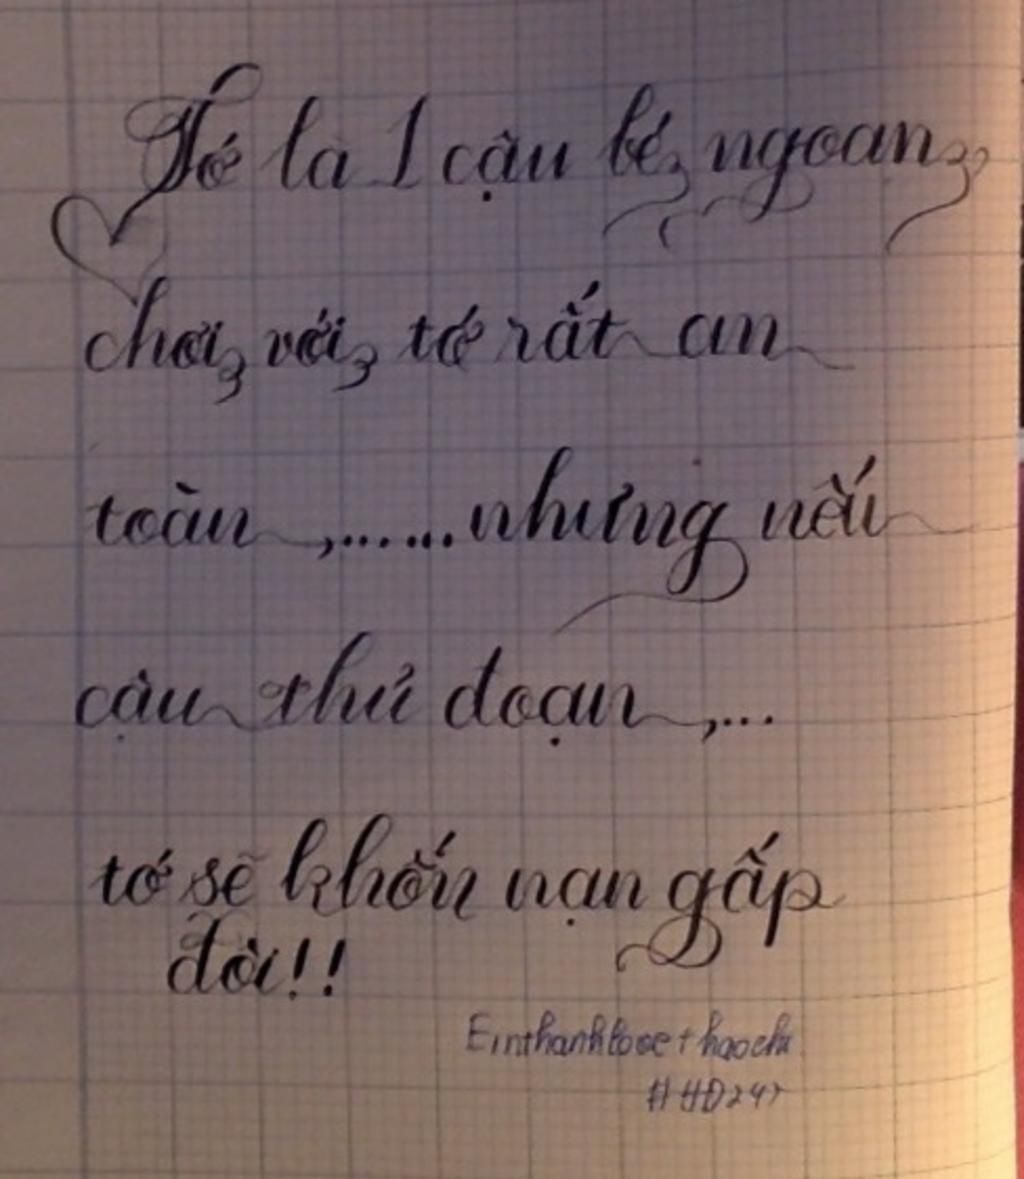 Tớ là 1 cậu bé ngoan
chơi với tớ rất an
toàn ,......nhưng nếu
cậu thủ đoạn ,...
tớ sẽ khốn nạn gấp
đôi!!
Einthanhlovethaochi